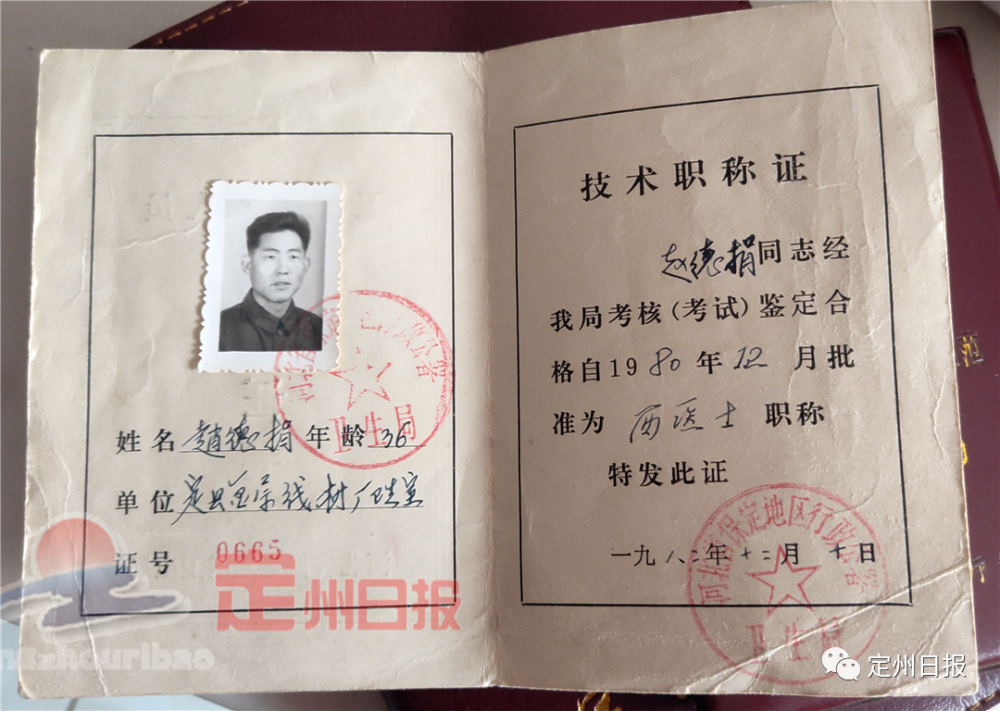 姓名 赵德捐 年龄 36
单位 定县金属线材厂卫生室
证号 0665
卫生局
技术职称证
赵德捐同志经
我局考核(考试)鉴定合
格自1980年12月批
准为 西医士 职称
特发此证
一九八二年十二月十日
河北省保定地区行政公署
卫生局
定州日报
ngzhouribao
定州日报